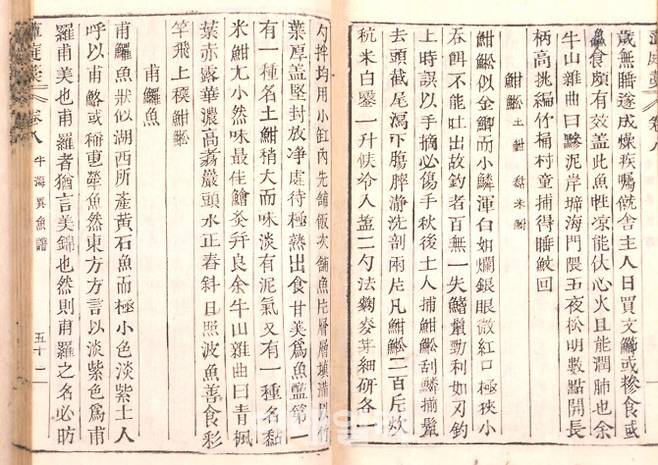 歲無睡遂成燥疾囑僦舍主人日買文鰤或摻食或
食頗有效蓋此魚性凉能伏心火且能潤肺也余
牛山雜曲曰黲泥岸海門隈五夜松明數點開長
柄高挑編竹桶村童捕得睡鮫回
魽 土魽 黏米魽
魽似金鯽而小鱗渾白如爛銀眼微紅口極狹小
吞餌不能吐出故釣者百無一失鰭鬣勁利如刃釣
上時誤以手摘必傷手秋後土人捕魽刮鱗揃鬣
去頭截尾瀉下膓膵澣洗剖兩片凡魽二百斤炊
秔米白鑿一升候冷入盐二勺法麴麥芽細硏各
勺拌均用小缸內先鋪飯次鋪魚片層層塡滿以竹
葉厚盖堅封放凈處待極熟出食甘美爲魚鹽第一
有一種名土魽稍大而味淡有泥氣又有一種名黏
米魽尤小然味最佳鱠炙幷良余牛山雜曲曰靑楓
葉赤露華濃高蕩巖頭水正舂斜日照波魚善食彩
竿飛上穤魽
甫鱺魚
甫鱺魚狀似湖西所產黃石魚而極小色淡紫土人
呼以甫鮥或稱甫犂魚然東方方言以淡紫色爲甫
羅甫美也甫羅者猶言美錦也然則甫羅之名必昉
卷八 牛海異魚譜 五十一